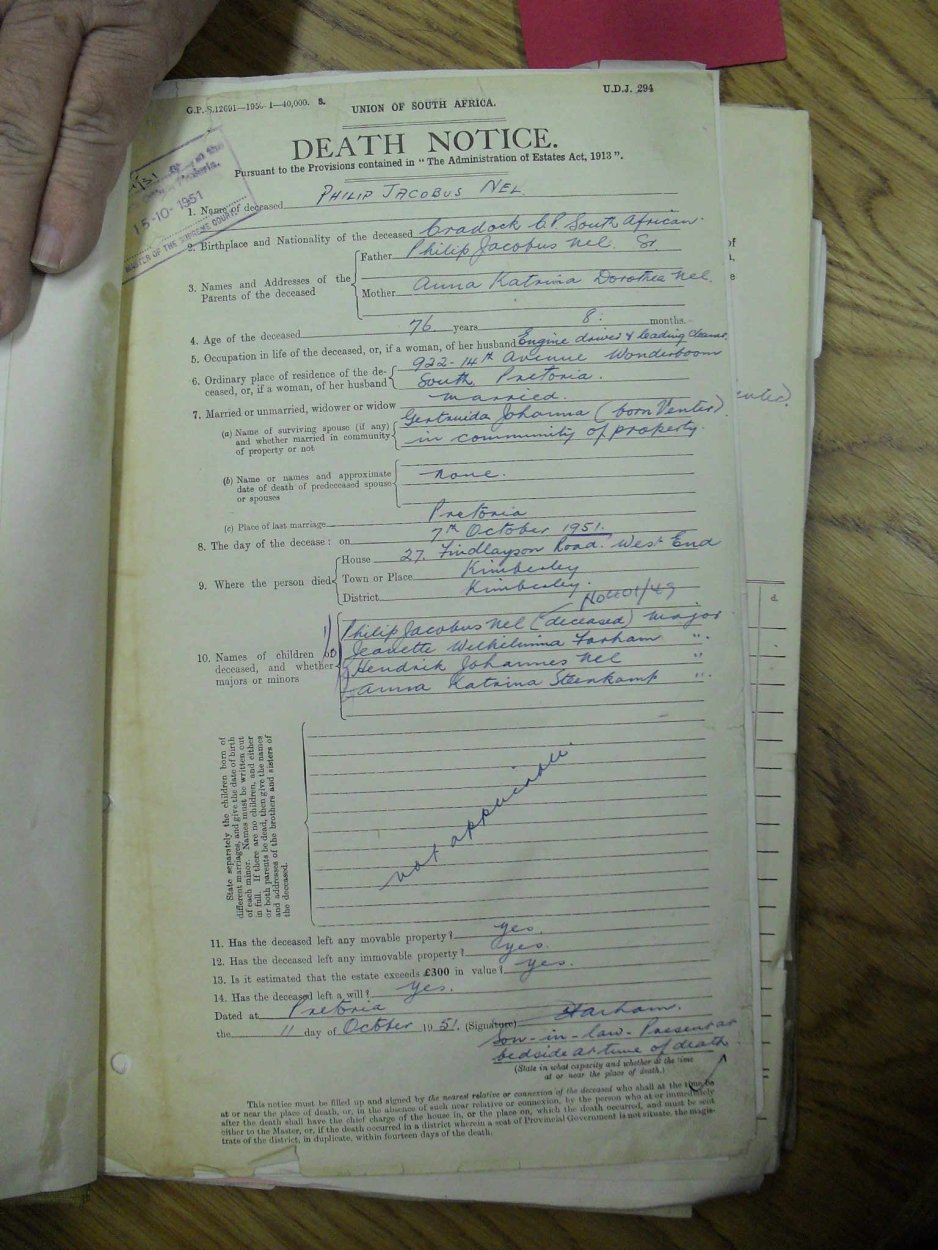 G.P.-S.12691—1950-1—40,000. S.
U.D.J. 294
UNION OF SOUTH AFRICA.
DEATH NOTICE.
Pursuant to the Provisions contained in “ The Administration of Estates Act, 1913 ”.
15-10-1951
MASTER OF THE SUPREME COURT
1. Name of deceased PHILIP JACOBUS NEL
2. Birthplace and Nationality of the deceased Cradock C.P. South African.
3. Names and Addresses of the Parents of the deceased
Father Philip Jacobus Nel. Sr.
Mother Anna Katrina Dorothea Nel.
4. Age of the deceased 76 years 8. months.
5. Occupation in life of the deceased, or, if a woman, of her husband Engine driver & leading cleaner
6. Ordinary place of residence of the de-
ceased, or, if a woman, of her husband
922-14th Avenue Wonderboom
South, Pretoria.
7. Married or unmarried, widower or widow married.
(a) Name of surviving spouse (if any)
and whether married in community
of property or not
Gertruida Johanna (born Venter)
in community of property.
(b) Name or names and approximate
date of death of predeceased spouse
or spouses
none.
(c) Place of last marriage Pretoria
8. The day of the decease : on 7th October 1951.
9. Where the person died
House 27. Findlayson Road. West End
Town or Place Kimberley
District Kimberley.
10. Names of children of
deceased, and whether
majors or minors
No 401/49
Philip Jacobus Nel (deceased) major
Jeanette Wilhelmina Farham ".
Hendrik Johannes Nel "
Anna Katrina Steenkamp ".
State separately the children born of
different marriages, and give the date of birth
of each minor. Names must be written out
in full. If there are no children, and either
or both parents be dead, then give the names
and addresses of the brothers and sisters of
the deceased.
not applicable.
11. Has the deceased left any movable property? yes.
12. Has the deceased left any immovable property? yes.
13. Is it estimated that the estate exceeds £300 in value? yes.
14. Has the deceased left a will? yes.
Dated at Pretoria
the 11 day of October 1951. (Signature) Farham.
Son-in-law. Present at
bedside at time of death
(State in what capacity and whether at the time
at or near the place of death.)
This notice must be filled up and signed by the nearest relative or connexion of the deceased who shall at the time be
at or near the place of death, or, in the absence of such near relative or connexion, by the person who at or immediately
after the death shall have the chief charge of the house in, or the place on, which the death occurred, and must be sent
either to the Master, or, if the death occurred in a district wherein a seat of Provincial Government is not situate, the magis-
trate of the district, in duplicate, within fourteen days of the death.